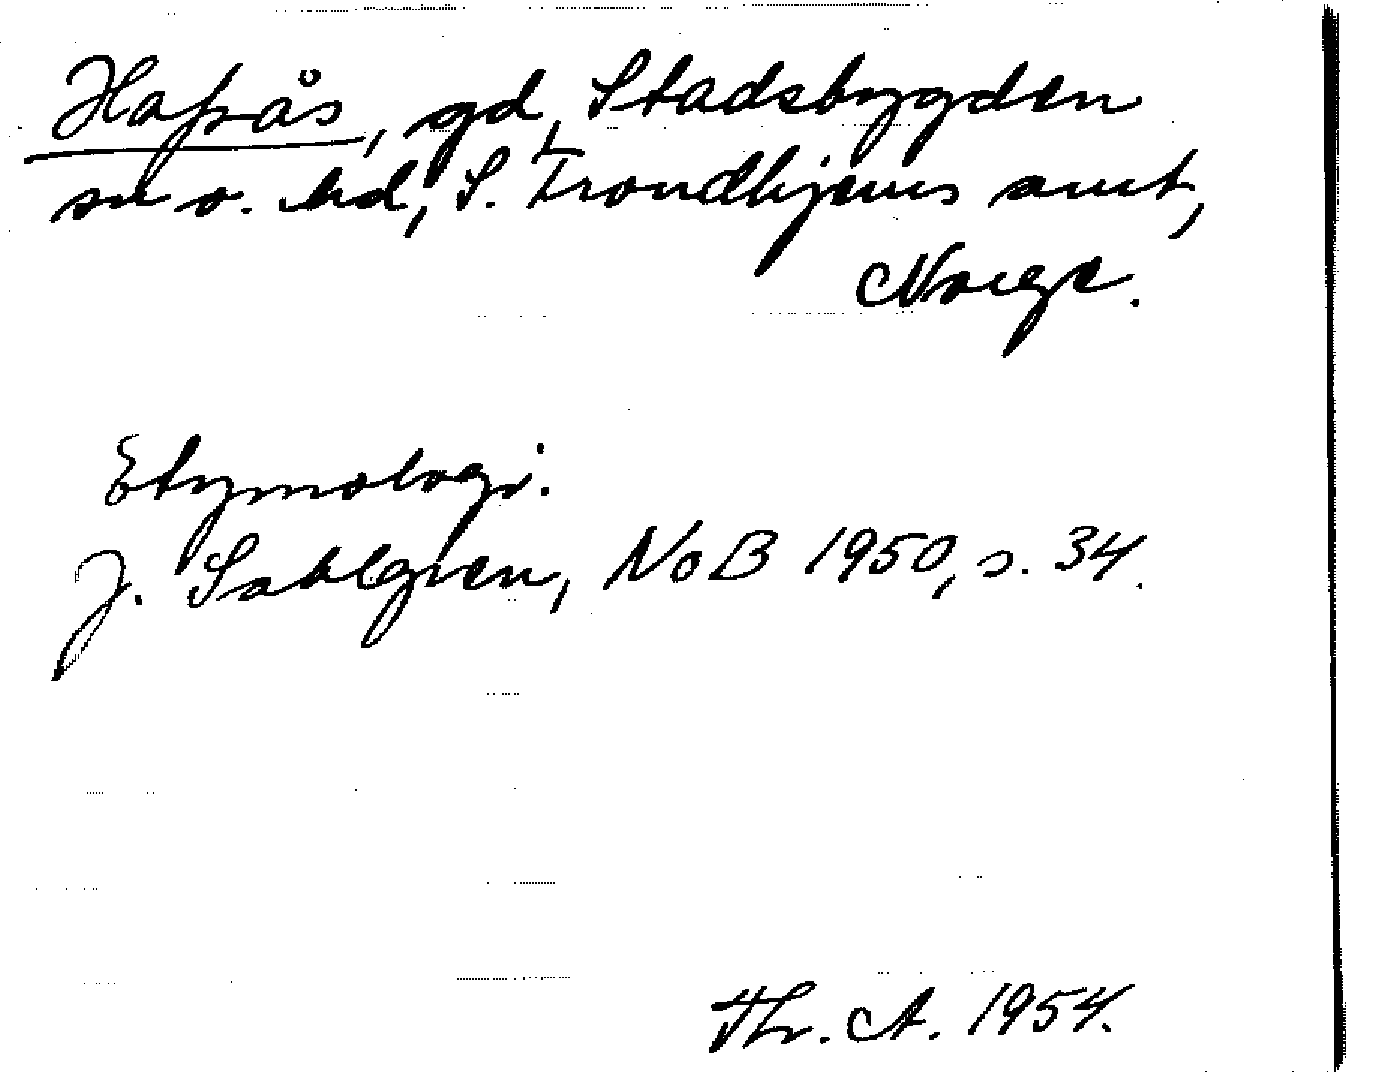 Hapås, gd, Stadsbygden
sn o. hrd, S. Trondhjems amt,
Norge.
Etymologi.
J. Sahlgren, NoB 1950, s. 34.
Th. A. 1954.